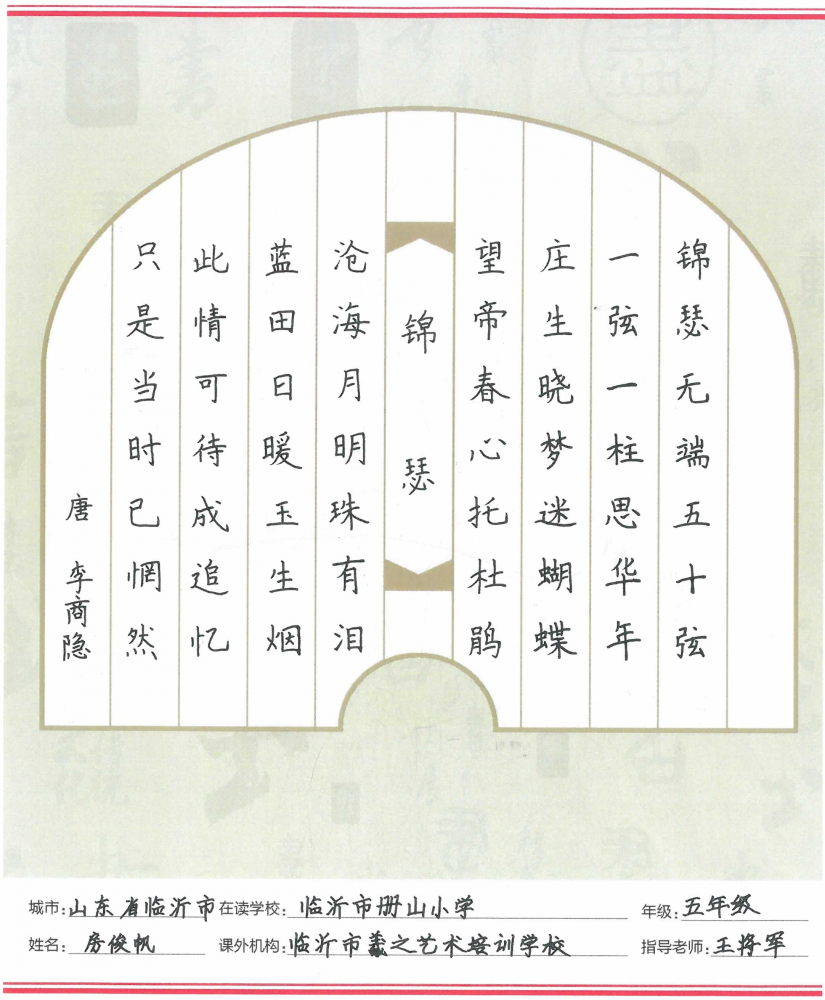 锦瑟无端五十弦
一弦一柱思华年
庄生晓梦迷蝴蝶
望帝春心托杜鹃
锦瑟
沧海月明珠有泪
蓝田日暖玉生烟
此情可待成追忆
只是当时已惘然
唐 李商隐
城市:山东省临沂市 在读学校:临沂市册山小学 年级:五年级
姓名:房俊帆 课外机构:临沂市羲之艺术培训学校 指导老师:王将军